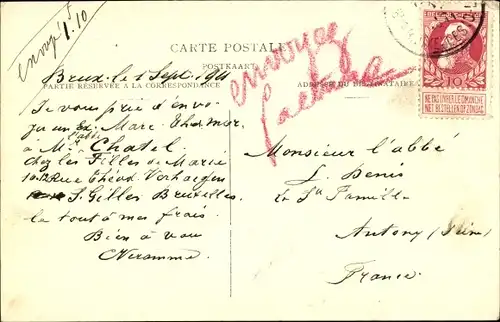 envoyé 1.10
CARTE POSTALE
POSTKAART
PARTIE RÉSERVÉE A LA CORRESPONDANCE
ADRESSE DU DESTINATAIRE
10
NE PAS LIVRER LE DIMANCHE
NIET BESTELLEN OP ZONDAG
envoyée
facture
Brux. le 1 Sept. 1911
Je vous prie d'envo
yer un Ex. Marc
à Mr l'abbé Chatel
chez les Filles de Marie
Rue Théod. Verhaegen
S. Gilles Bruxelles
le tout à mes frais.
Bien à vous
Monsieur l'abbé
L. Denis
La Ste Famille
Antony (Seine)
France